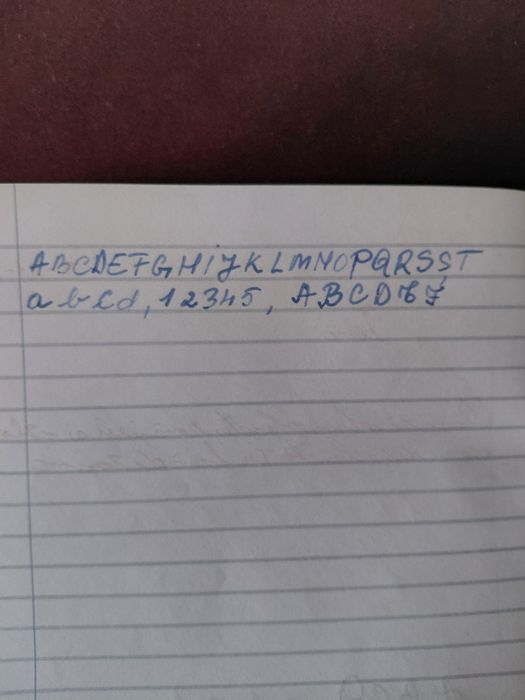 ABCDEFGHIJKLMNOPQRSȘT
abcd, 12345, ABCDEF